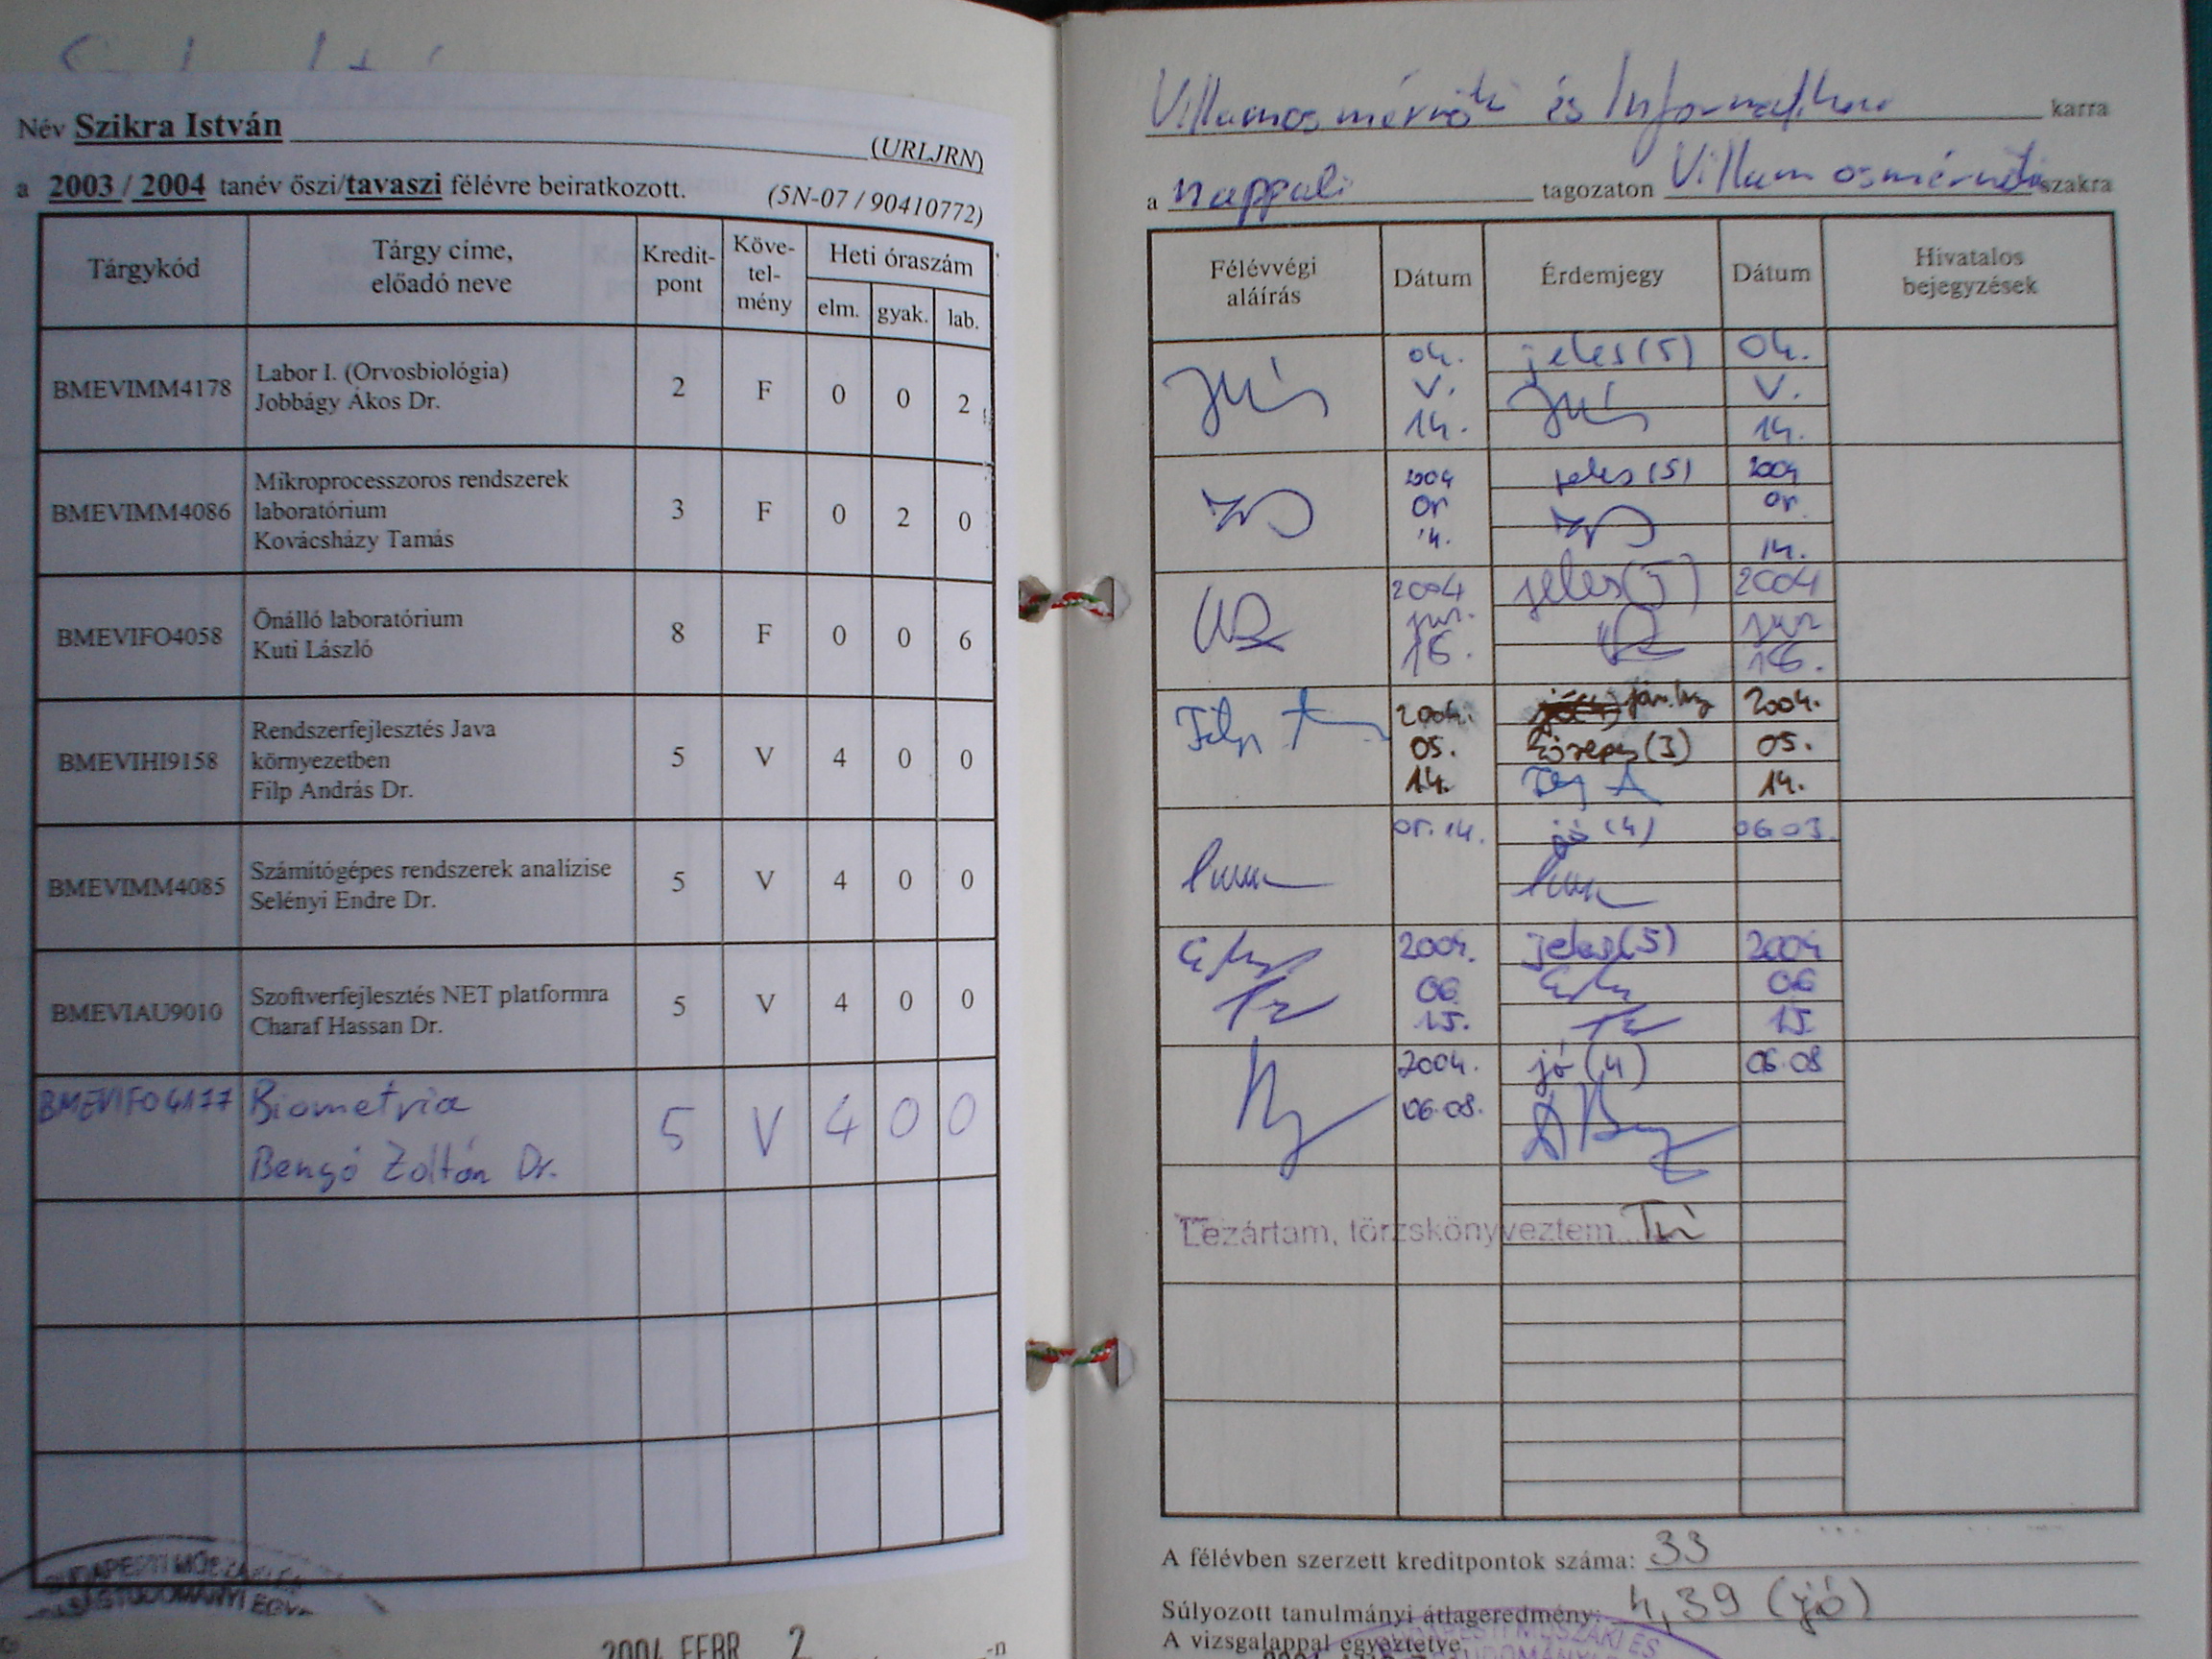 Név Szikra István (URLJRN)
a 2003 / 2004 tanév őszi/tavaszi félévre beiratkozott. (5N-07 / 90410772)
Tárgykód
Tárgy címe,
előadó neve
Kredit-
pont
Köve-
tel-
mény
Heti óraszám
elm. gyak. lab.
BMEVIMM4178
Labor I. (Orvosbiológia)
Jobbágy Ákos Dr.
2 F 0 0 2
BMEVIMM4086
Mikroprocesszoros rendszerek
laboratórium
Kovácsházy Tamás
3 F 0 2 0
BMEVIFO4058
Önálló laboratórium
Kuti László
8 F 0 0 6
BMEVIHI9158
Rendszerfejlesztés Java
környezetben
Filp András Dr.
5 V 4 0 0
BMEVIMM4085
Számítógépes rendszerek analízise
Selényi Endre Dr.
5 V 4 0 0
BMEVIAU9010
Szoftverfejlesztés NET platformra
Charaf Hassan Dr.
5 V 4 0 0
BMEVIFO4177
Biometria
Bengó Zoltán Dr.
5 V 4 0 0
2004 FEBR 2 -n
Villamosmérnöki és Informatikai karra
a nappali tagozaton Villamosmérnöki szakra
Félévvégi
aláírás
Dátum
Érdemjegy
Dátum
Hivatalos
bejegyzések
04. jeles (5) 04.
V. V.
14. 14.
2004 jeles (5) 2004
05 05.
14. 14.
2004 jeles (5) 2004
jun. jun
16. 16.
2004. 2004.
05. közepes (3) 05.
14. 14.
05. 14. jó (4) 06 03.
2004. jeles (5) 2004
06 06
15. 15
2004. jó (4) 06.08
06.08.
Lezártam, törzskönyveztem
A félévben szerzett kreditpontok száma: 33
Súlyozott tanulmányi átlageredmény: 4,39 (jó)
A vizsgalappal egyeztetve.